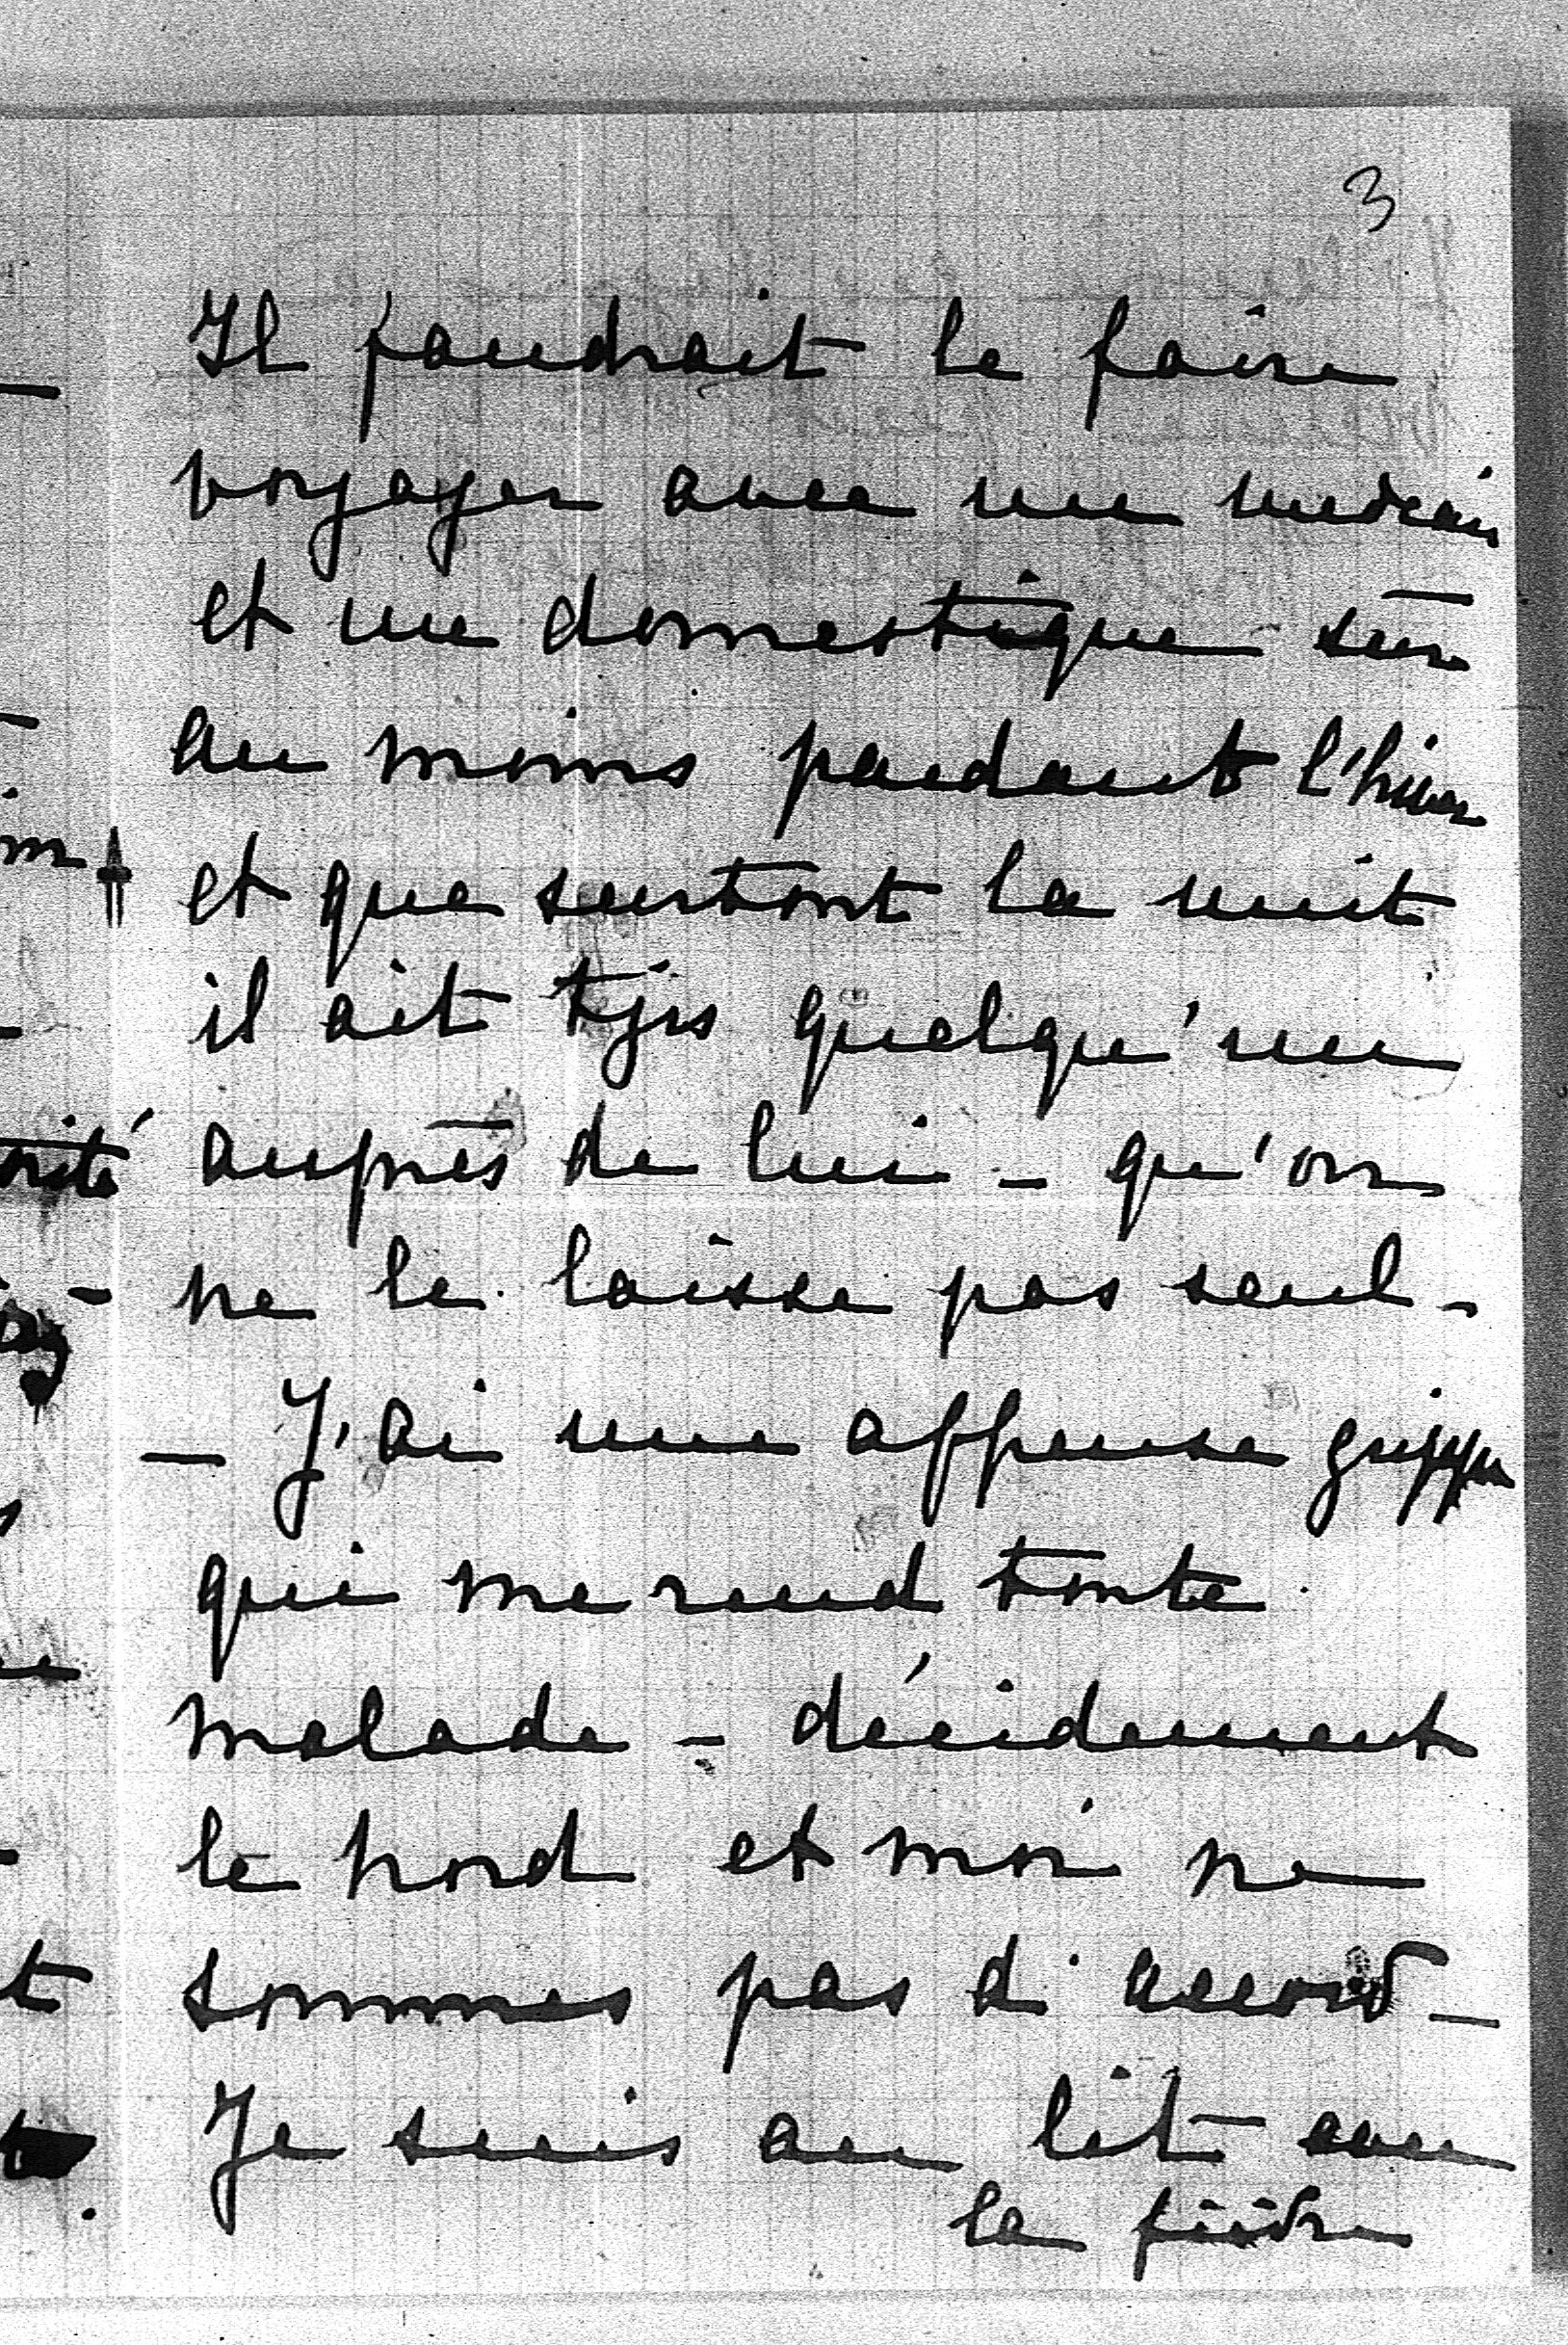 3
Il faudrait le faire
voyager avec un medecin
et un domestique sûr
au moins pendant l'hiver
et que surtout la nuit
il ait tjrs quelqu'un
auprès de lui - qu'on
ne le laisse pas seul -
- J'ai une affreuse grippe
qui me rend toute
malade - décidement
le nord et moi ne
sommes pas d'accord -
Je suis au lit avec
la fièvre